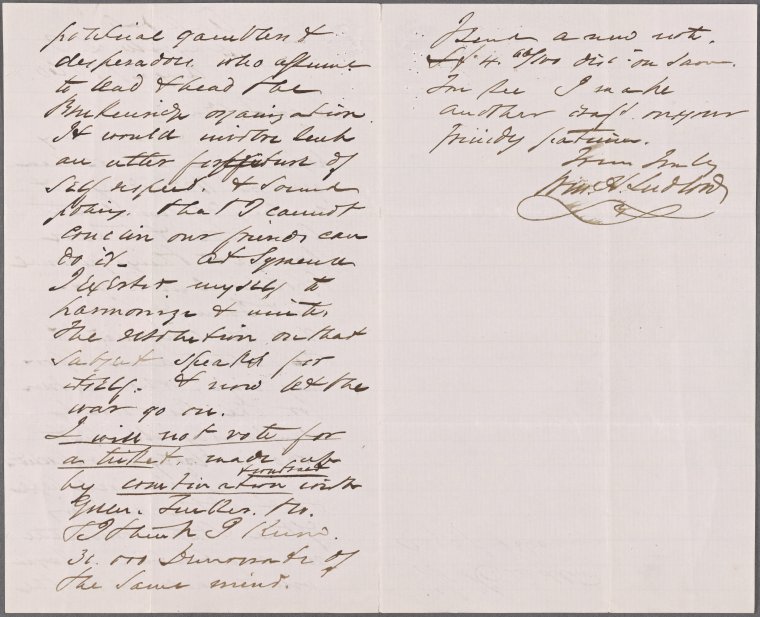 political gamblers &
desperadoes who assume
to lead & head the
Breckenridge organization.
It would involve such
an utter forfeiture of
self respect. & sound
policy. that I cannot
conceive our friends can
do it - at Syracuse
I exerted myself to
harmonize & unite.
The resolution on that
subject speaks for
itself. & now let the
war go on.
I will not vote for
a ticket. made up
& contract
by combination with
Green. Tucker. &c.
& I think I know.
30.000 Democrats of
the same mind.
I send a new note.
4. 66/100 disc. on same.
You see I make
another draft on your
friendly patience.
Yours Truly
Wm. H. Ludlow